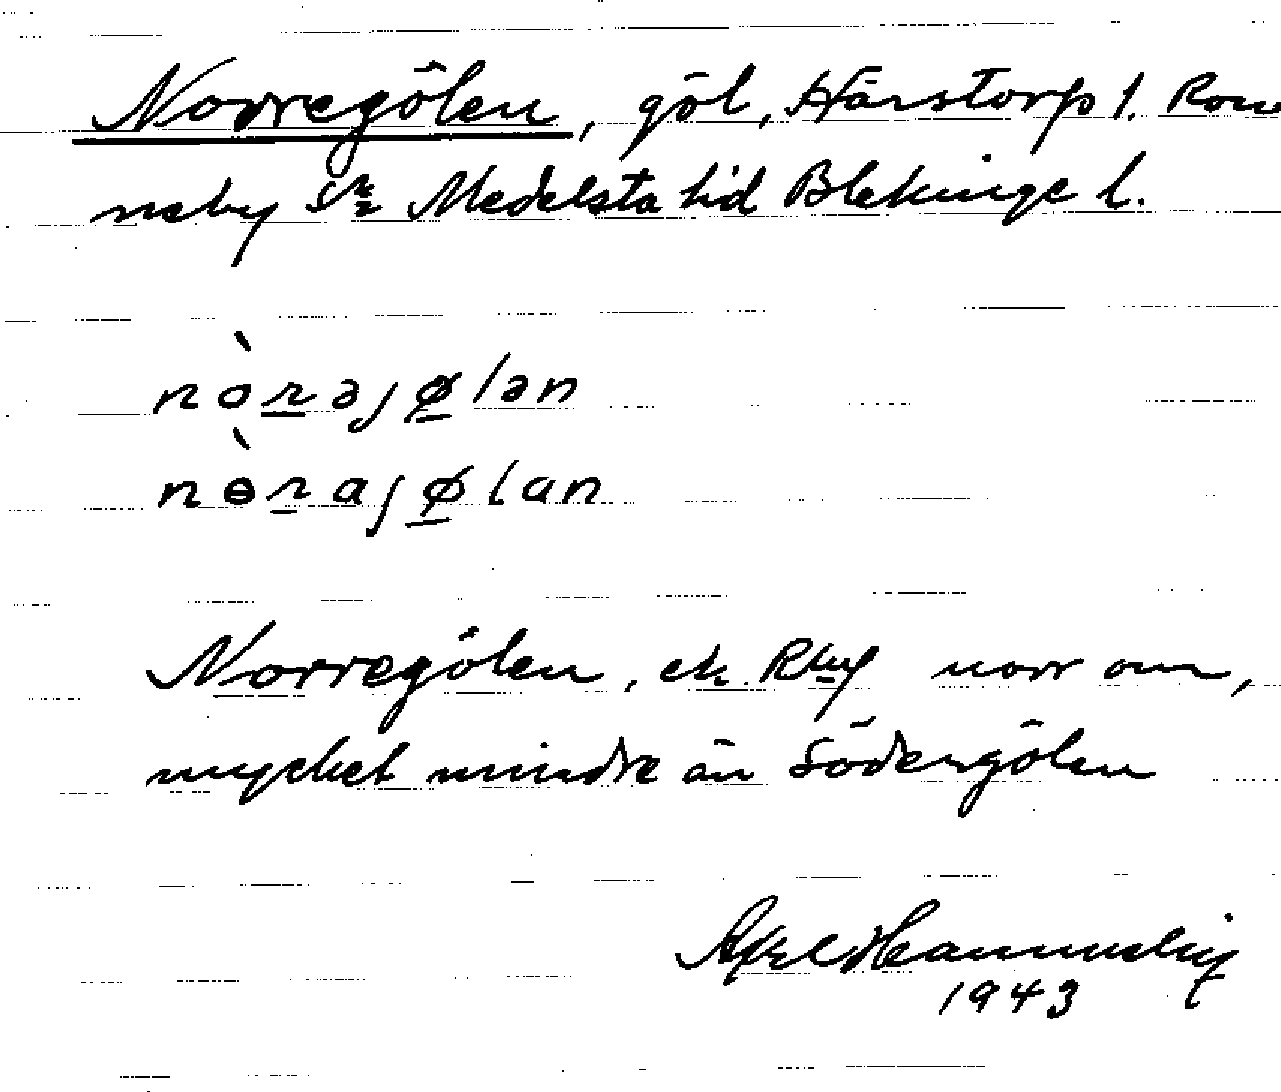 Norregölen, göl, Härstorp 1. Ron
neby sn Medelsta hd Blekinge l.
nòrəjølən
nɵ̀rajølan
Norregölen, ek. norr om,
mycket mindre än Södergölen
1943